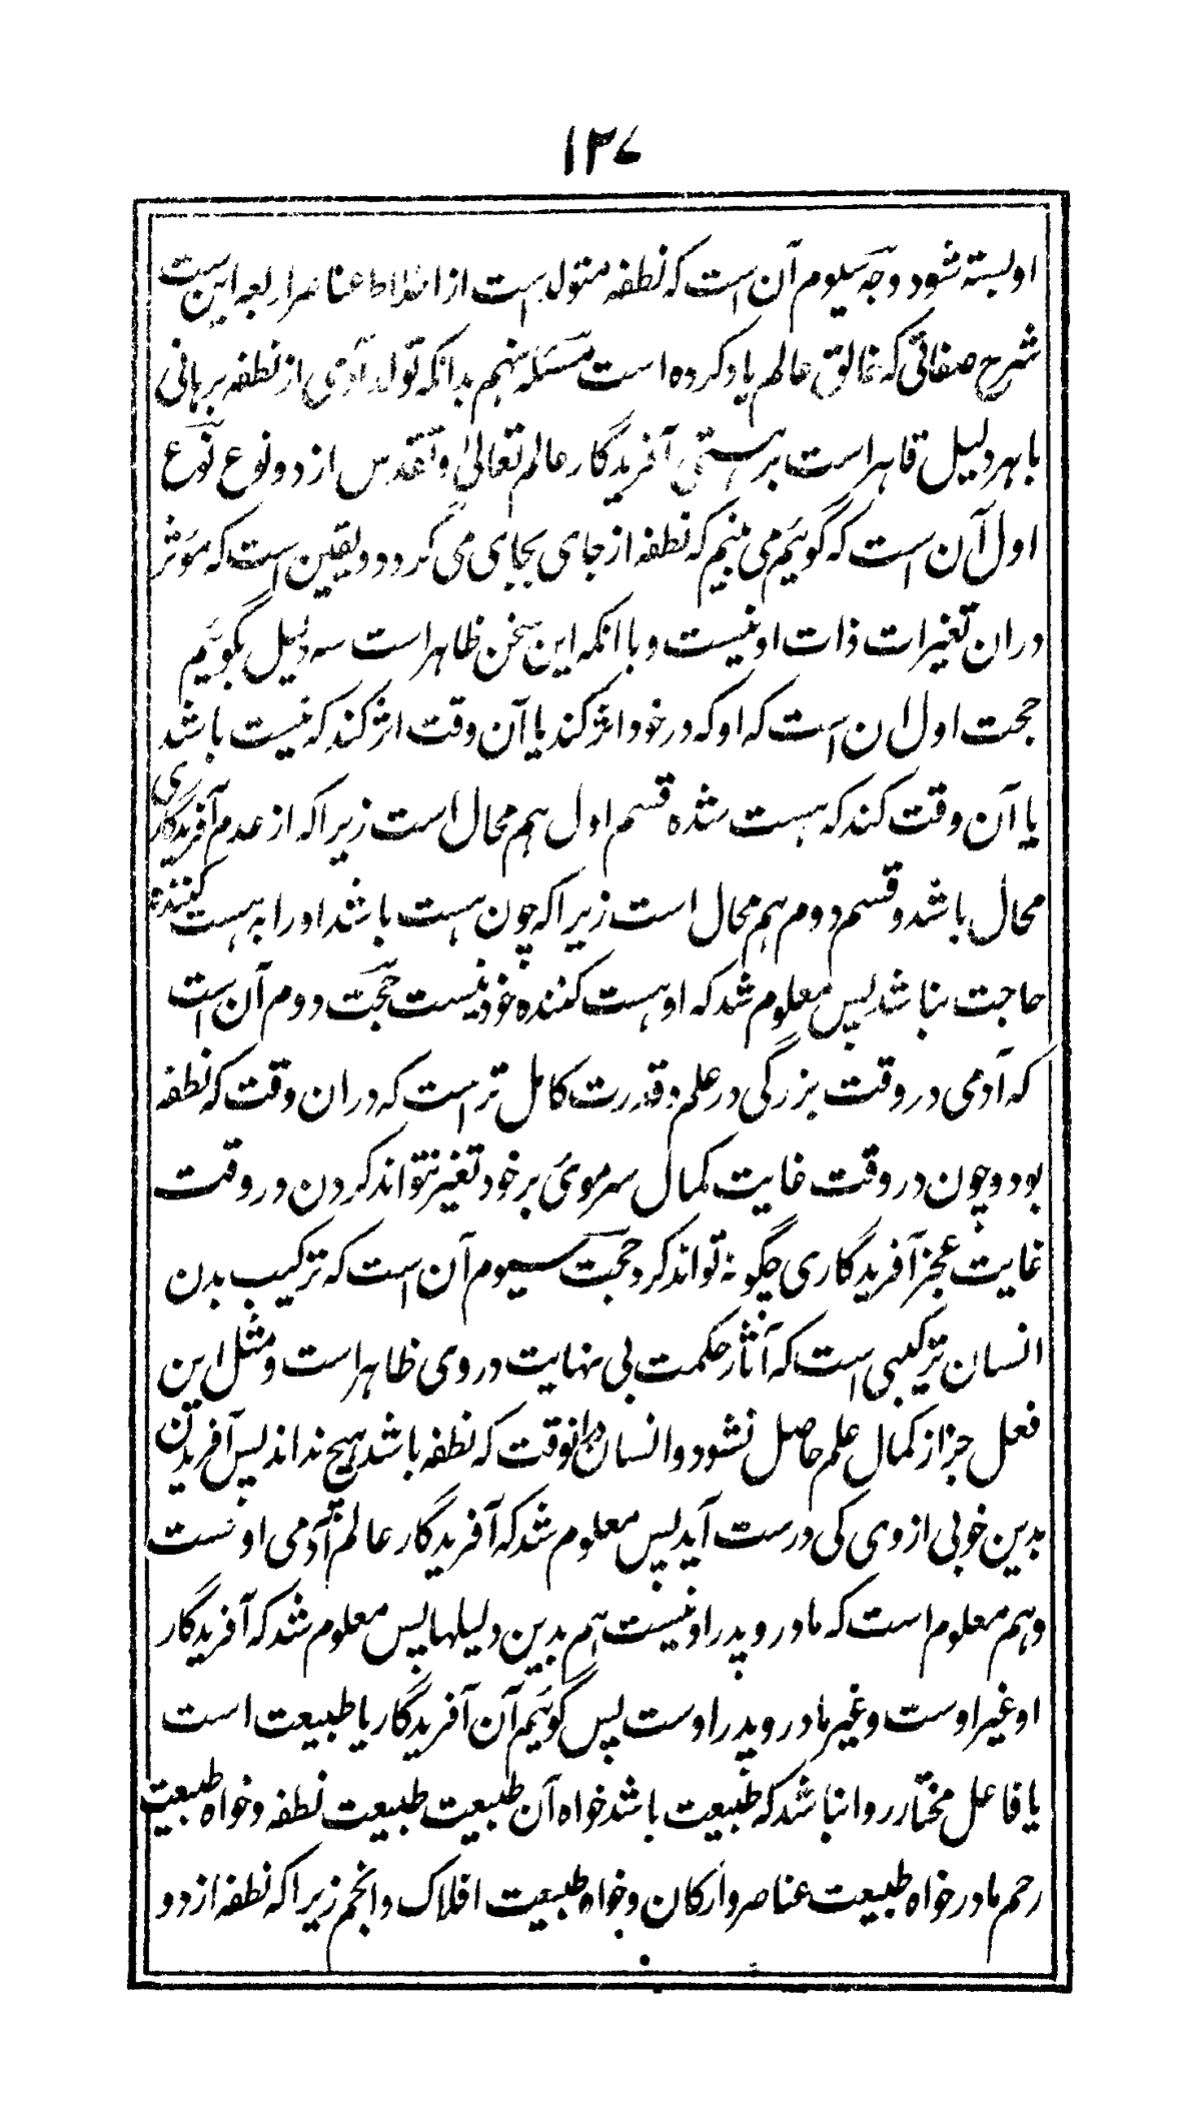 ۱۳۷
او بسته شود وجه سیوم آن است که نطفه متولد است از اخلاط عناصر اربعه این است
شرح صفاتی که خالق عالم یاد کرده است مسئله پنجم بدانکه تولد آدمی از نطفه برهانی
باهر دلیل قاهر است بر هستی آفریدگار عالم تعالیٰ و تقدس از دو نوع نوع
اول آن است که گوئیم می بینیم که نطفه از جای بجای می گردد و یقین است که موثر
دران تغیرات ذات او نیست و با انکه این سخن ظاهر است سه دلیل بگوئیم
حجت اول ان است که او که در خود اثر کند یا آن وقت اثر کند که نیست باشد
یا آن وقت کند که هست شده قسم اول هم محال است زیرا که از عدم آفریدگاری
محال باشد و قسم دوم هم محال است زیرا که چون هست باشد او را به هست کننده
حاجت نباشد پس معلوم شد که او هست کننده خود نیست حجت دوم آن است
که آدمی در وقت بزرگی در علم و قدرت کامل تر است که دران وقت که نطفه
بود و چون در وقت غایت کمال سر موئ بر خود تغیر نتواند کردن در وقت
غایت عجز آفریدگاری چگونه تواند کرد حجت سیوم آن است که ترکیب بدن
انسان ترکیبی است که آثار حکمت بی نهایت در وی ظاهر است و مثل این
فعل جز از کمال علم حاصل نشود و انسان درانوقت که نطفه باشد هیچ نداند پس آفریدن
بدین خوبی از وی کی درست آید پس معلوم شد که آفریدگار عالم آدمی او نیست
و هم معلوم است که مادر و پدر او نیست هم بدین دلیلها پس معلوم شد که آفریدگار
او غیر اوست و غیر مادر و پدر اوست پس گوئیم آن آفریدگار یا طبیعت است
یا فاعل مختار روا نباشد که طبیعت باشد خواه آن طبیعت طبیعت نطفه و خواه طبیعت
رحم مادر خواه طبیعت عناصر و ارکان و خواه طبیعت افلاک و انجم زیرا که نطفه از دو